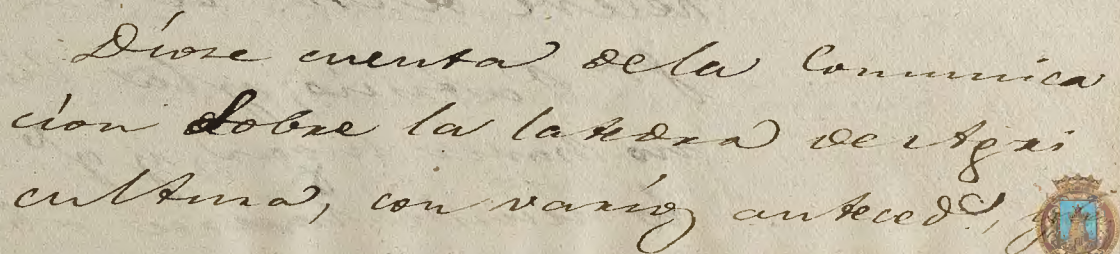 Diose cuenta de la Comunica
cion sobre la Catedra de Agri
cultura, con varios anteced.s, y